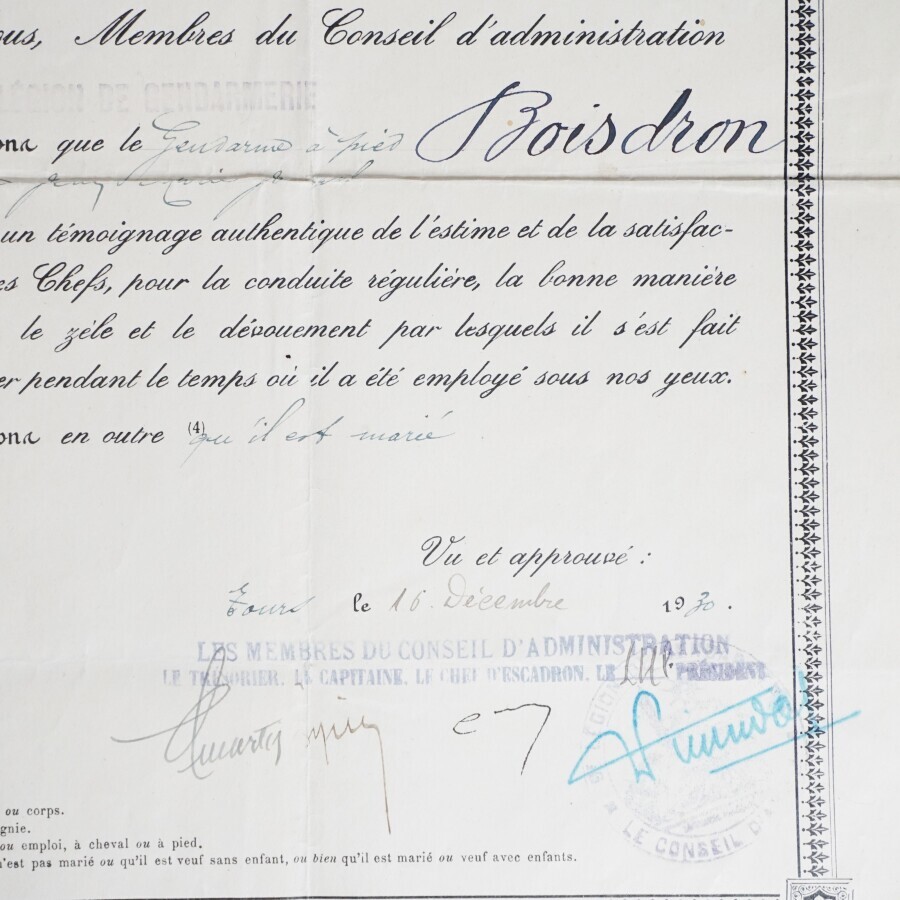 ous, Membres du Conseil d'administration
LÉGION DE GENDARMERIE
ons que le Gendarme à pied Boisdron
un témoignage authentique de l'estime et de la satisfac-
es Chefs, pour la conduite réguliére, la bonne maniére
le zèle et le dévouement par lesquels il s'est fait
er pendant le temps où il a été employé sous nos yeux.
ons en outre (4) qu'il est marié
Vu et approuvé :
Tours le 16 Décembre 1930.
LES MEMBRES DU CONSEIL D'ADMINISTRATION
LE TRÉSORIER. LE CAPITAINE. LE CHEF D'ESCADRON. LE PRÉSIDENT
LE CONSEIL D'A
ou corps.
gnie.
ou emploi, à cheval ou à pied.
n'est pas marié ou qu'il est veuf sans enfant, ou bien qu'il est marié ou veuf avec enfants.